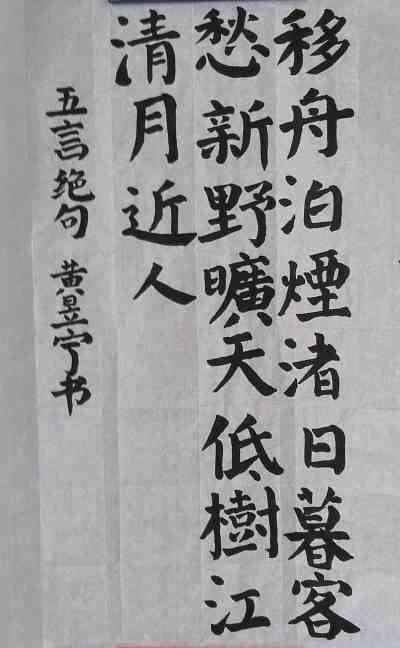 移舟泊煙渚日暮客
愁新野曠天低樹江
清月近人
五言绝句 黄昱宁书